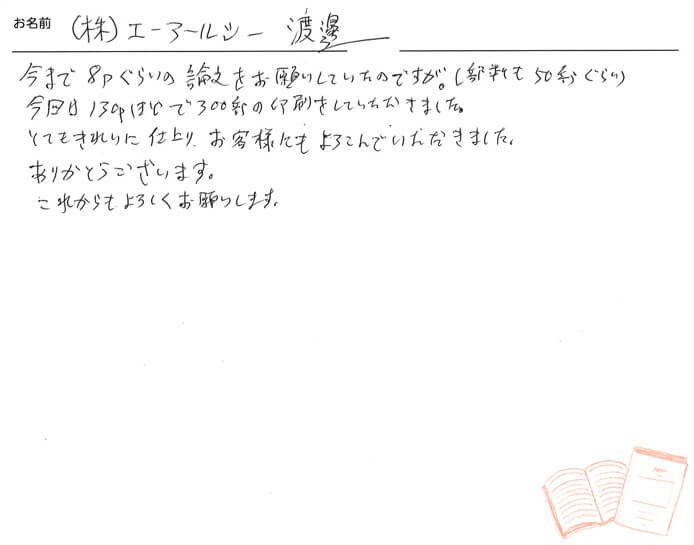 お名前 (株)エーアールシー 渡邊
今まで 8Pぐらいの 論文をお願いしていたのですが。(部数も 50部ぐらい)
今回は 130pほどで300部の印刷をしていただきました。
とてもきれいに仕上り、お客様にも よろこんでいただきました。
ありがとうございます。
これからもよろしくお願いします。